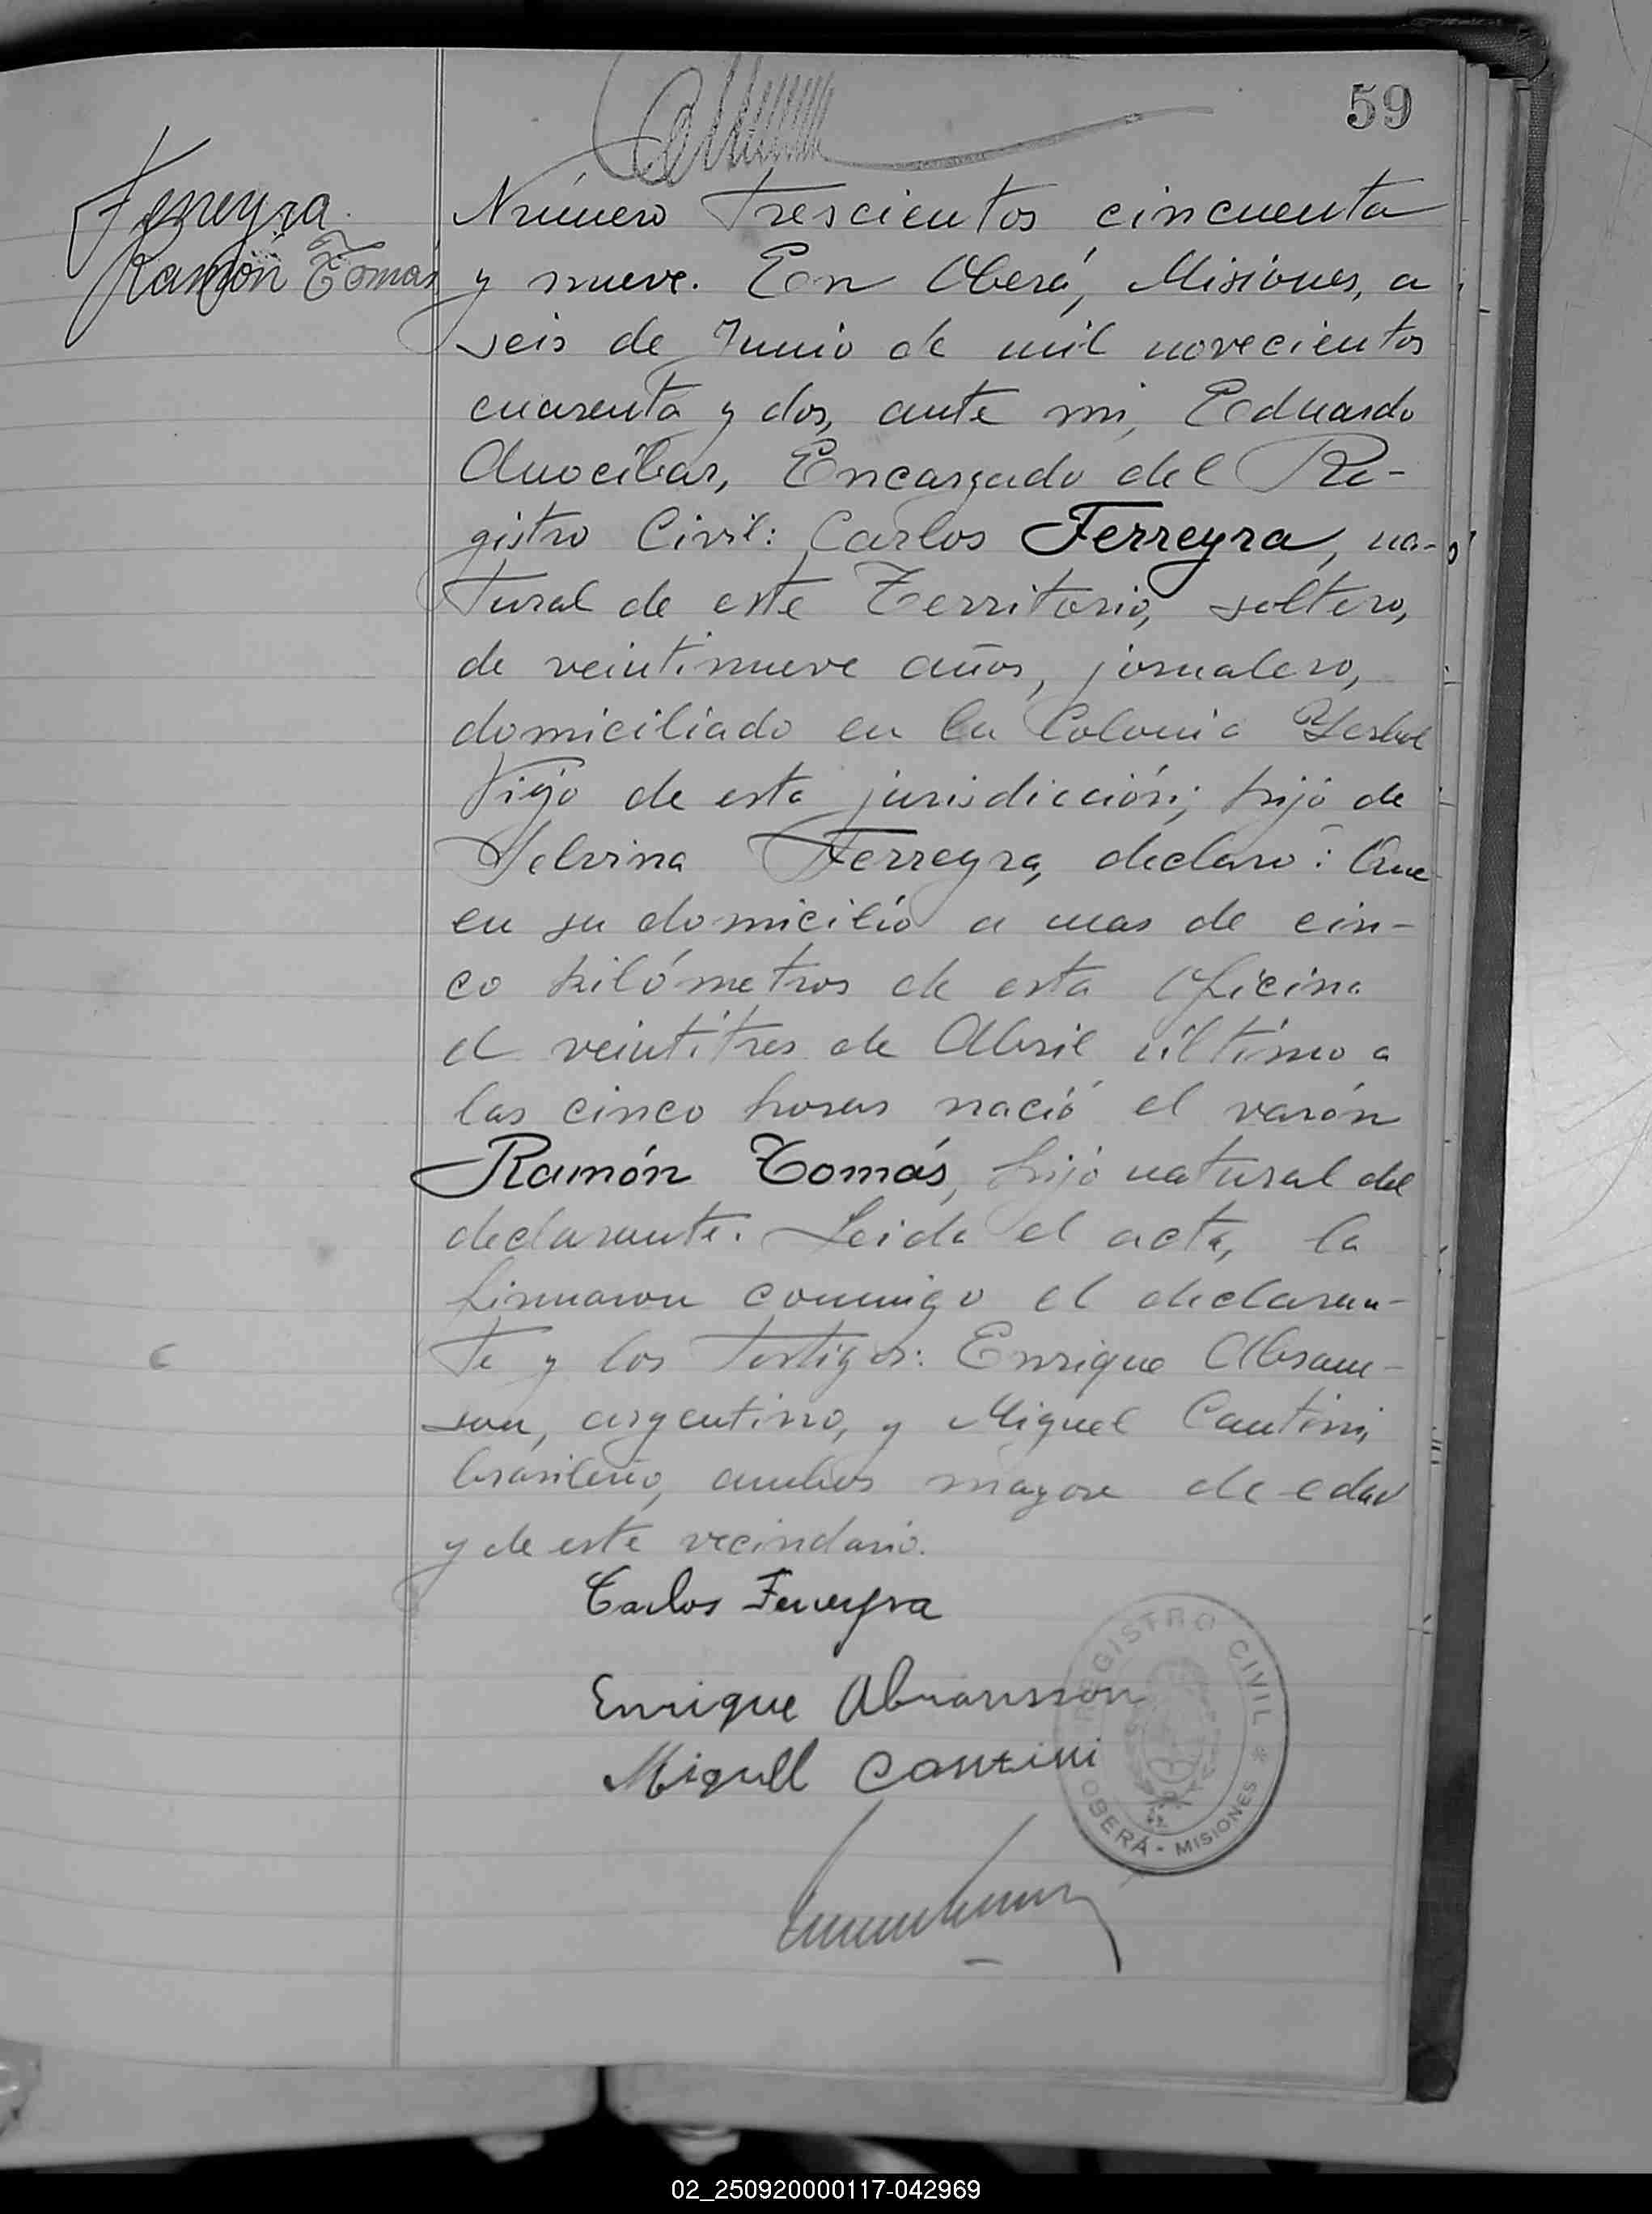 59
Ferreyra
Ramón Tomás
Número trescientos cincuenta
y nueve. En Oberá, Misiones, a
seis de Junio de mil novecientos
cuarenta y dos, ante mi, Eduardo
Anocíbar, Encargado del Re-
gistro Civil: Carlos Ferreyra, na-
tural de este Territorio, soltero,
de veintinueve años, jornalero,
domiciliado en la Colonia Yerbal
Viejo de esta jurisdicción; hijo de
Selvina Ferreyra, declaro: Que
en su domicilio a mas de cin-
co kilómetros de esta Oficina
el veintitres de Abril último a
las cinco horas nació el varón
Ramón Tomás, hijo natural del
declarante. Leida el acta, la
firmaron conmigo el declaran-
te y los testigos: Enrique Abram-
son, argentino, y Miguel Cantini,
brasileño, ambos mayore de edad
y de este vecindario.
Carlos Ferreyra
Enrique Abramsson
Miguel Cantini
REGISTRO CIVIL * OBERÁ - MISIONES
02_250920000117-042969